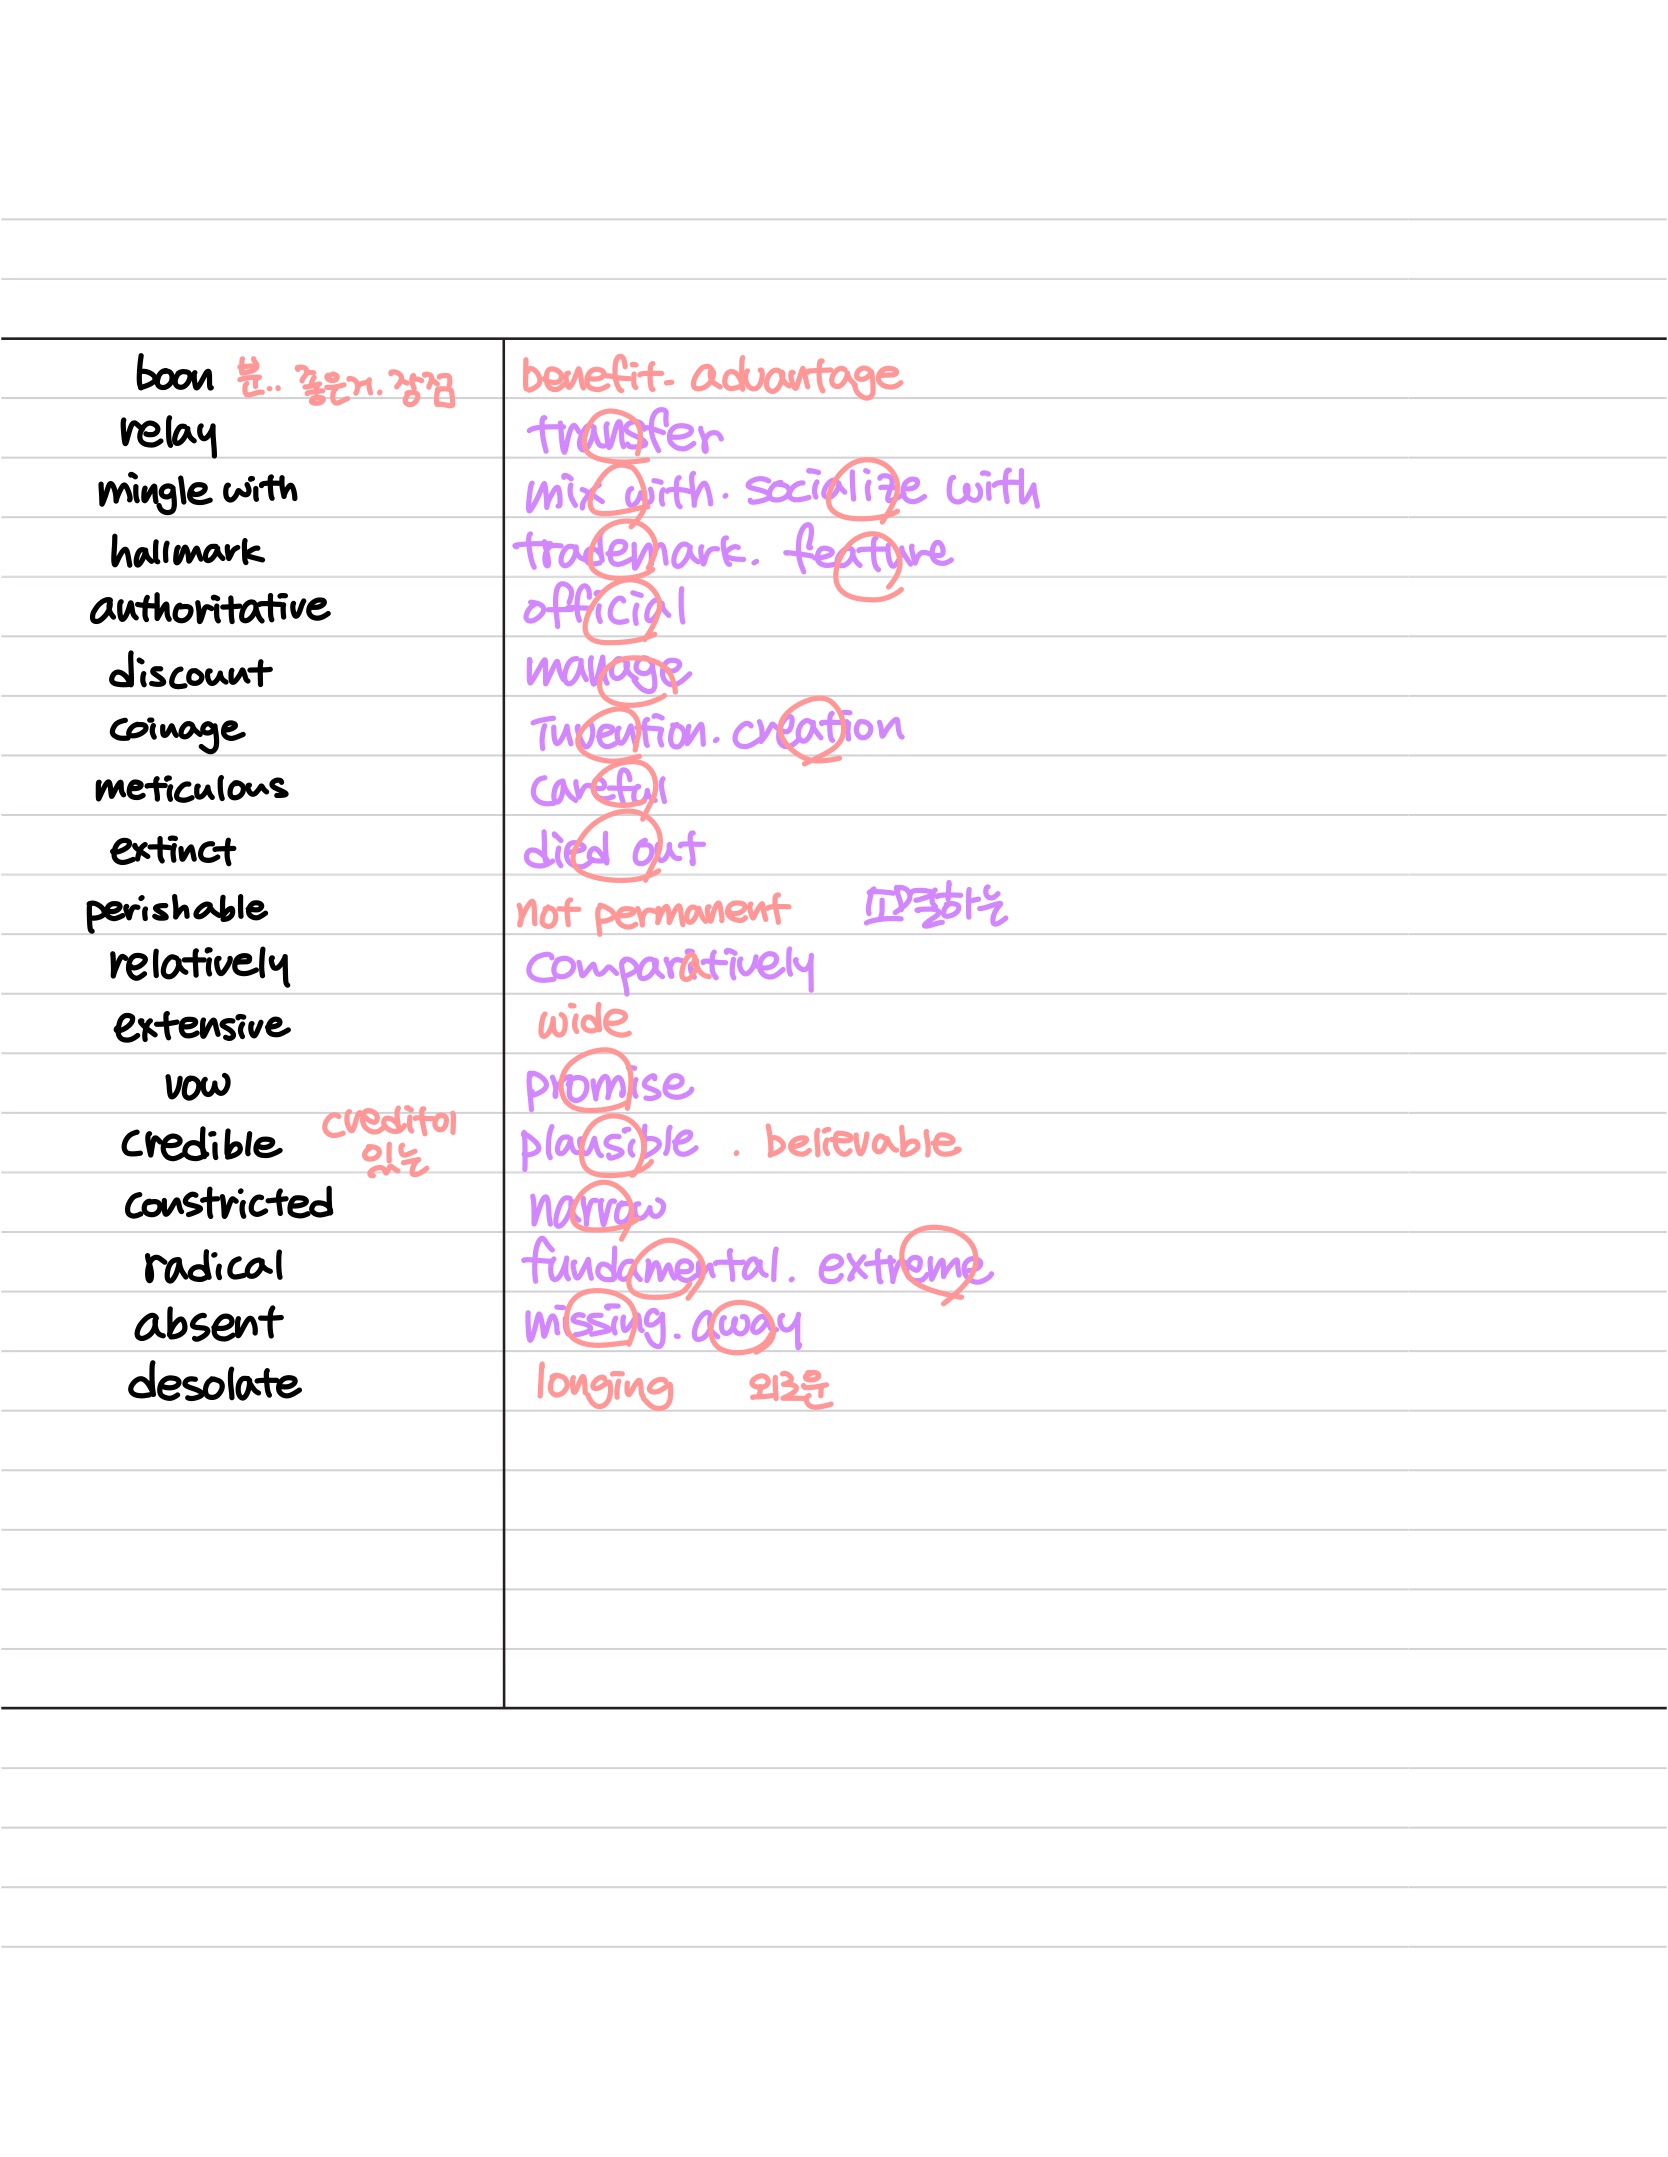 boon 분.. 좋은거. 장점 benefit. advantage
relay transfer
mingle with mix with. socialize with
hallmark trademark. feature
authoritative official
discount manage
coinage Invention. creation
meticulous careful
extinct died out
perishable not permanent
relatively comparatively
extensive wide
vow promise
credible credit이 있는 plausible . believable
constricted narrow
radical fundamental. extreme
absent missing. away
desolate longing 외로운